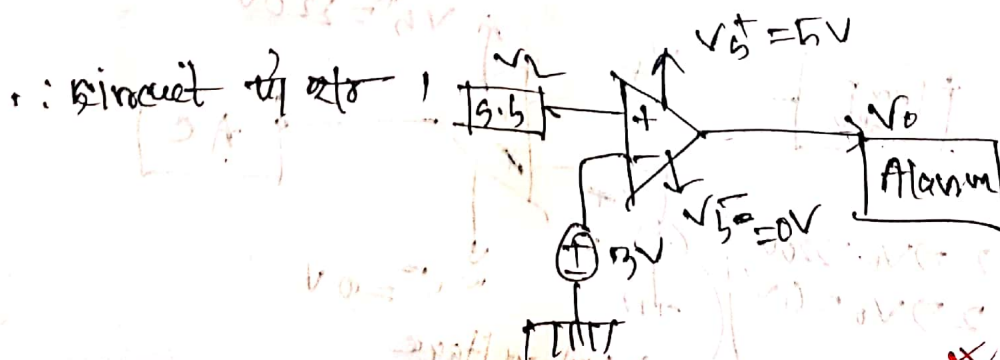 ∴ circuit টা হবে ।
V₂
S.S
+
-
Vs⁺ = 5V
Vs⁻ = 0V
3V
V₀
Alarm